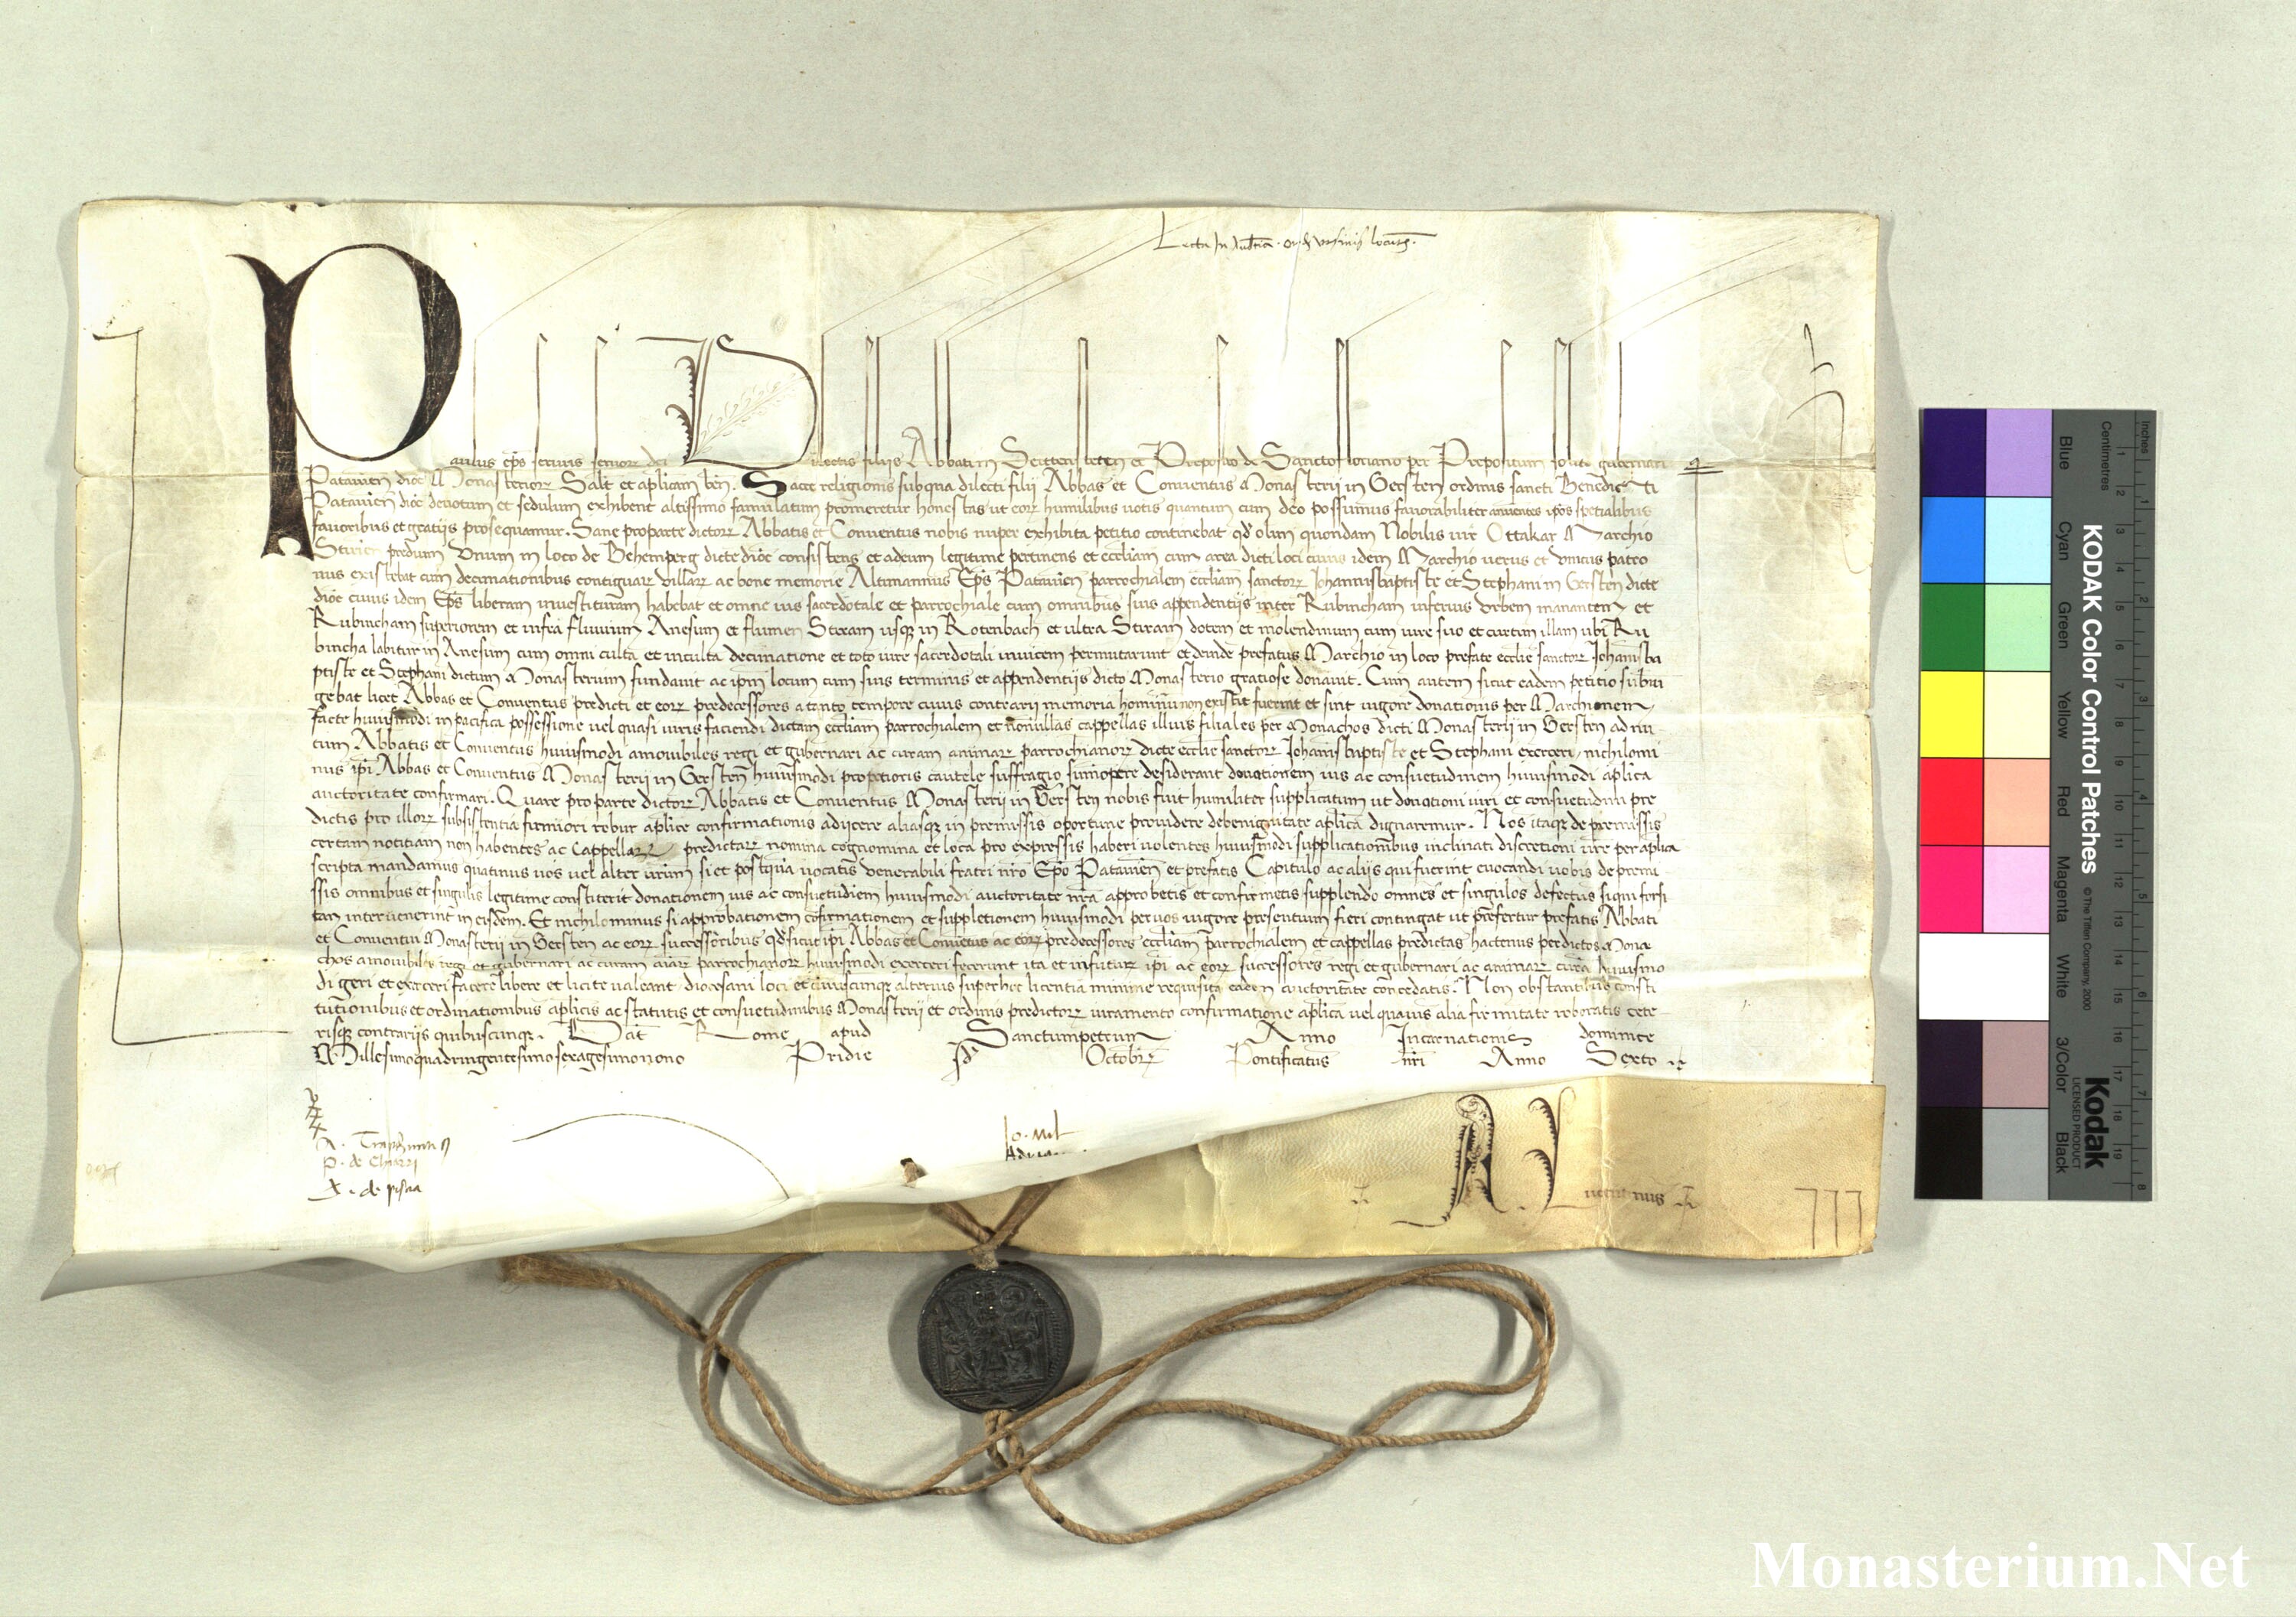 Lecta In Audtia
Paulus eps seruus seruorz dei Dilectis filijs Abbati in Seittensteten et Preposito de Sancto floriano per Prepositum solito gubernari
Patauien dioc Monasteriorz Salt et aplicam ben. Sacre religionis sub qua dilecti filij Abbas et Conuentus Monasterij in Gersten ordinis sancti Benedicti
Patauien dioc deuotum et sedulum exhibent altissimo famulatum promeretur honestas ut eorz humilibus uotis quantum cum deo possumus fauorabiliter annuentes ipos spetialibus
fauoribus et gratijs prosequamur. Sane pro parte dictorz Abbatis et Conuentus nobis nuper exhibita petitio continebat qd olim quondam Nobilis uir Ottakar Marchio
Stirien predium Vnum in loco de Behemperg dicte dioc consistens et ad eum legitime pertinens et eccliam cum area dicti loci cuius idem Marchio uerus et Vnicus patro
nus existebat cum decimationibus contiguarz villarz ac bone memorie Altmannus Eps Patauien parrochialem eccliam sanctorz Johannisbaptiste et Stephani in Gersten dicte
dioc cuius idem Eps liberam inuestituram habebat et omne ius sacerdotale et parrochiale cum omnibus suis appendentijs inter Rubincham inferius Vrbem manantem et
Rubincham superiorem et infra fluuium Anesum et flumen Stiram usqz in Rotenbach et ultra Stiram dotem et molendinum cum iure suo et curtim illam ubi Ru
bincha labitur in Anesum cum omni culta et inculta decimatione et toto iure sacerdotali inuicem permutarunt et deinde prefatus Marchio in loco prefate ecclie sanctorz Johannisba
ptiste et Stephani dictum Monasterium fundauit ac ipm locum cum suis terminis et appendentijs dicto Monasterio gratiose donauit. Cum autem sicut eadem petitio subiun
gebat licet Abbas et Conuentus predicti et eorz predecessores a tanto tempore cuius contrarij memoria hominum non existit fuerint et sint uigore donationis per Marchionem
facte huiusmodi in pacifica possessione uel quasi iuris faciendi dictam eccliam parrochialem et nonnullas cappellas illius filiales per Monachos dicti Monasterij in Gersten ad nu
tum Abbatis et Conuentus huiusmodi amouibiles regi et gubernari ac curam animarz parrochianorz dicte ecclie sanctorz Johannisbaptiste et Stephani exerceri, nichilomi
nus ipi Abbas et Conuentus Monasterij in Gersten huiusmodi pro potioris cautele suffragio summopere desiderant donationem ius ac consuetudinem huiusmodi aplica
auctoritate confirmari. Quare pro parte dictorz Abbatis et Conuentus Monasterij in Gersten nobis fuit humiliter supplicatum ut donationi iuri et consuetudini pre
dictis pro illorz subsistentia firmiori robur aplice confirmationis adijcere aliasqz in premissis oportune prouidere de benignitate aplica dignaremur. Nos itaqz de premissis
certam notitiam non habentes ac Cappellarz predictarz nomina cognomina et loca pro expressis haberi uolentes huiusmodi supplicationibus inclinati discretioni ure per aplica
scripta mandamus quatinus uos uel alter urum si et postqua uocatis Venerabili fratri nro Epo Patauien et prefatis Capitulo ac alijs qui fuerint euocandi uobis de premi
ssis omnibus et singulis legitime constiterit donationem ius ac consuetudiem huiusmodi auctoritate nra approbetis et confirmetis supplendo omnes et singulos defectus siqui forsi
tan interuenerint in eisdem. Et nichilominus si approbationem confirmationem et suppletionem huiusmodi per uos uigore presentium fieri contingat ut prefertur prefatis Abbati
et Conuentui Monasterij in Gersten ac eorz successoribus qd sicut ipi Abbas et Conuetus ac eorz predecessores eccliam parrochialem et cappellas predictas hactenus per dictos Mona
chos amouibiles regi et gubernari ac curam aiarz parrochianorz huiusmodi exerceri fecerunt ita et in futurz ipi ac eorz successores regi et gubernari ac animarz cura huiusmo
di geri et exerceri facere libere et licite ualeant diocesani loci et cuiuscunqz alterius super hoc licentia minime requisita eadem auctoritate concedatis. Non obstantibus consti
tutionibus et ordinationibus aplicis ac statutis et consuetudinibus Monasterij et ordinis predictorz iuramento confirmatione aplica uel quauis alia firmitate roboratis cete
risqz contrarijs quibuscunqz. Dat Rome apud Sanctumpetrum Anno Incarnationis dominice
Millesimoquadringentesimosexagesimonono Pridie Id Octobrz Pontificatus nri Anno Sexto
P. de Chiarri
de pistia
Jo. Mel
A. L
KODAK Color Control Patches © The Tiffen Company, 2000
Kodak
LICENSED PRODUCT
Inches
Centimetres
Blue
Cyan
Green
Yellow
Red
Magenta
White
3/Color
Black
Monasterium.Net